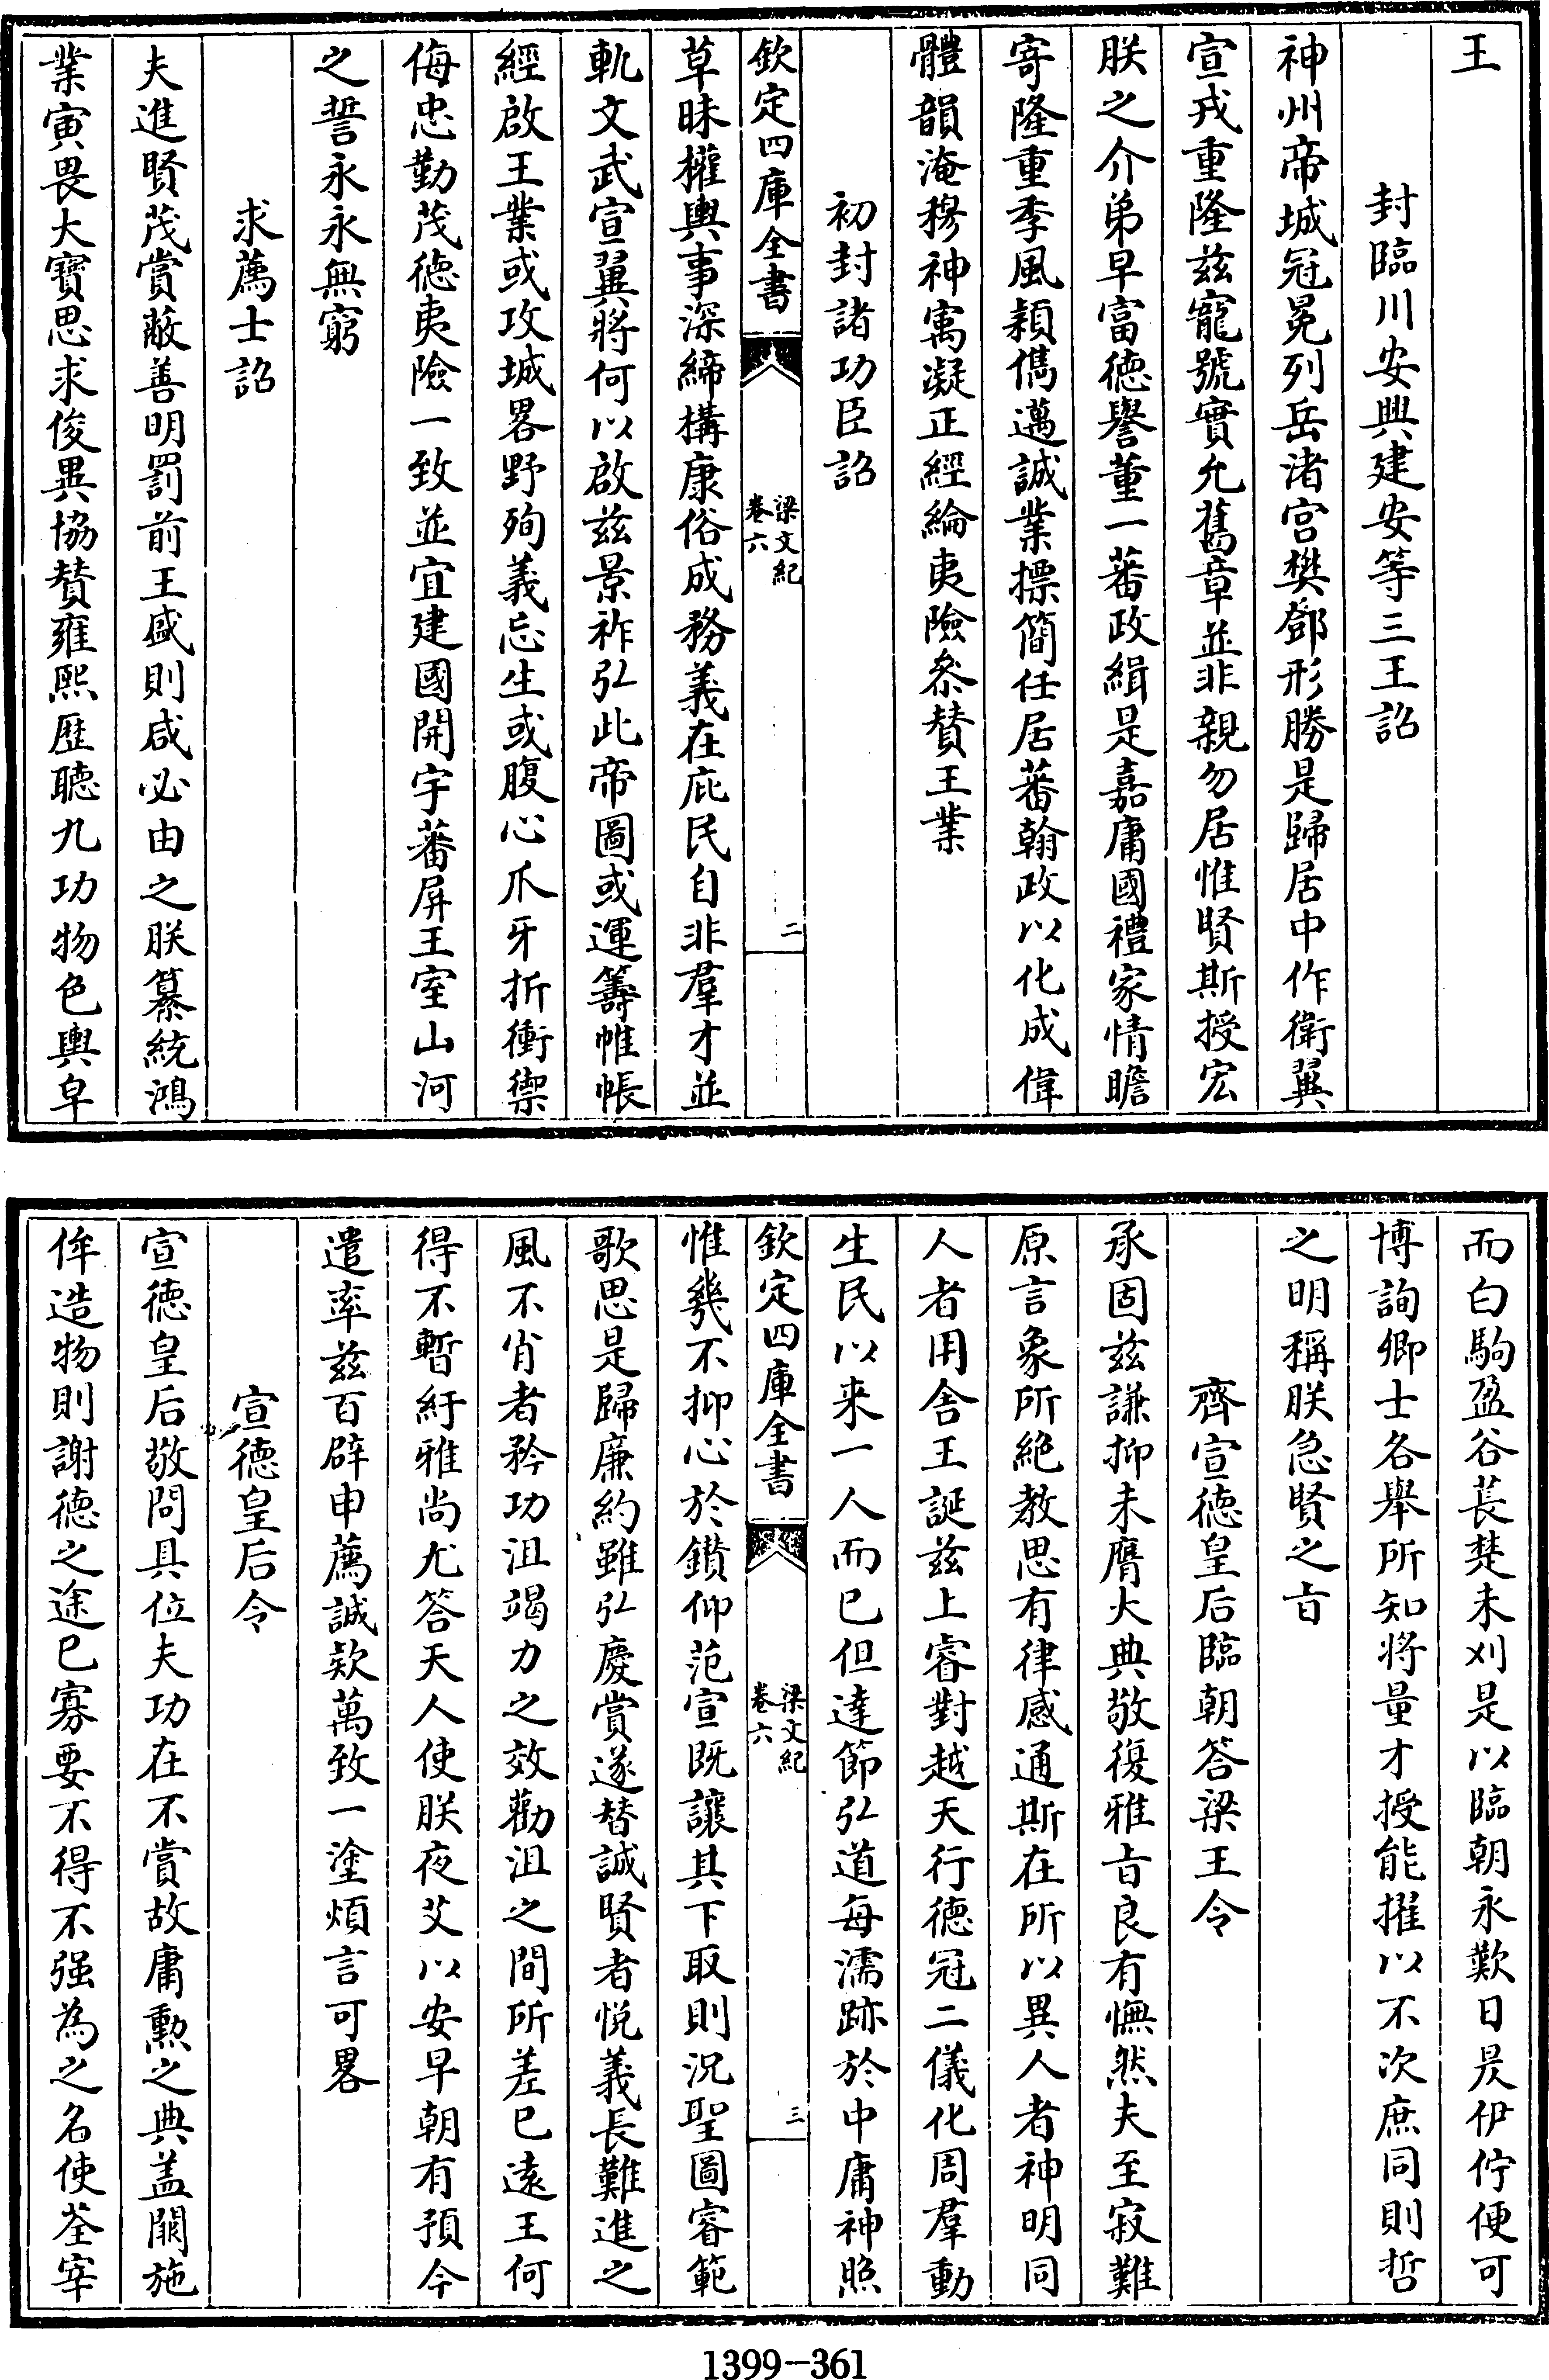 王
封臨川安興建安等三王詔
神州帝城冠冕列岳渚宫樊鄧形勝是歸居中作衛翼
宣戎重隆兹寵號實允舊章並非親勿居惟賢斯授宏
朕之介弟早富德譽董一蕃政緝是嘉庸國禮家情瞻
寄隆重季風穎儁邁誠業摽簡任居蕃翰政以化成偉
體韻淹穆神㝢凝正經綸夷險叅賛王業
初封諸功臣詔
欽定四庫全書
梁文紀
卷六
二
草昧權輿事深締構康俗成務義在庇民自非羣才並
軌文武宣翼將何以啟兹景祚弘此帝圖或運籌帷帳
經啟王業或攻城畧野殉義忘生或腹心爪牙折衝禦
侮忠勤茂德夷險一致並宜建國開宇蕃屏王室山河
之誓永永無窮
求薦士詔
夫進賢茂賞蔽善明罰前王盛則咸必由之朕纂統鴻
業寅畏大寳思求俊異協賛雍熙歴聽九功物色輿皁
而白駒盈谷萇楚未刈是以臨朝永歎日昃伊佇便可
博詢卿士各舉所知將量才授能擢以不次庶同則哲
之明稱朕急賢之㫖
齊宣德皇后臨朝答梁王令
承固兹謙抑未膺大典敬復雅㫖良有憮然夫至寂難
原言象所絶教思有律感通斯在所以異人者神明同
人者用舍王誕兹上睿對越天行德冠二儀化周羣動
生民以来一人而已但達節弘道每濡跡於中庸神照
欽定四庫全書
梁文紀
卷六
三
惟㡬不抑心於鑚仰范宣既讓其下取則況聖圖睿範
歌思是歸廉約雖弘慶賞遂替誠賢者悦義長難進之
風不肖者矜功沮竭力之效勸沮之間所差已遠王何
得不暫紆雅尚尤答天人使朕夜艾以安早朝有預今
遣率兹百辟申薦誠欵萬致一塗煩言可畧
宣德皇后令
宣德皇后敬問具位夫功在不賞故庸勲之典盖闕施
侔造物則謝德之途已寡要不得不强為之名使荃宰
1399-361